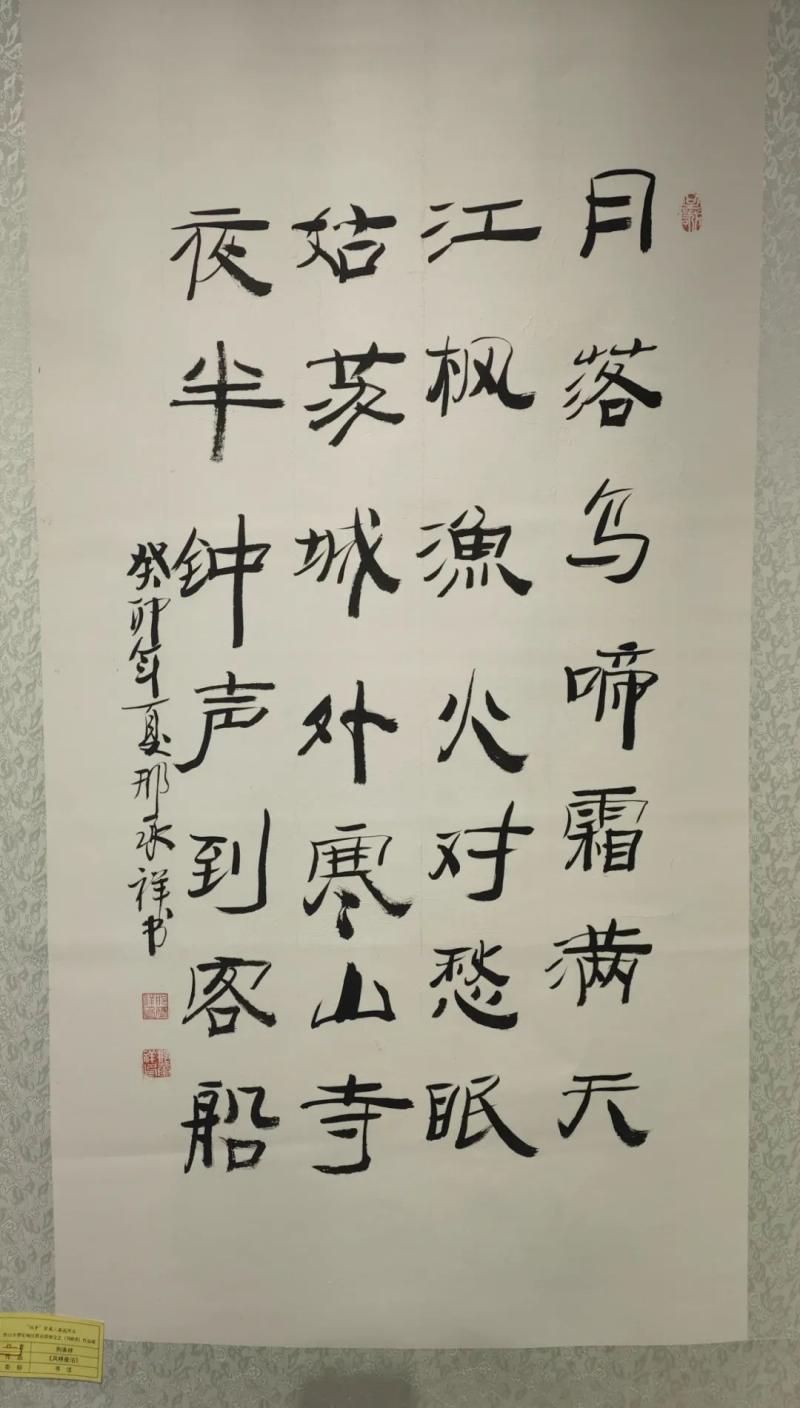 月落乌啼霜满天
江枫渔火对愁眠
姑苏城外寒山寺
夜半钟声到客船
癸卯年夏邢承祥书
《枫桥夜泊》
书法